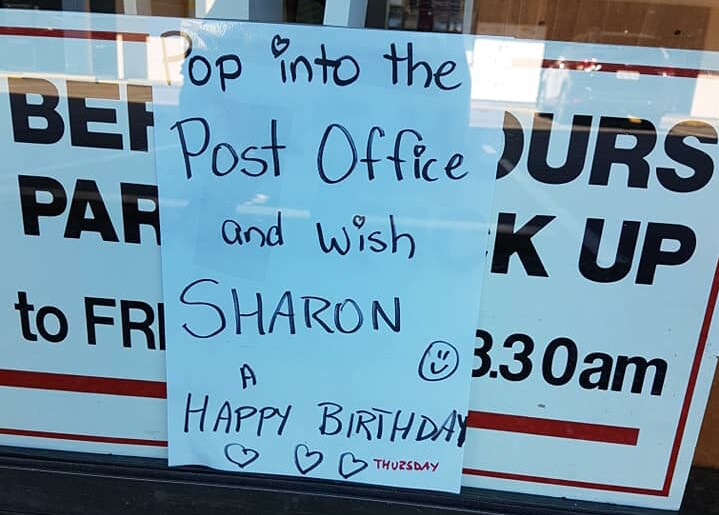 Pop into the
Post Office
and wish
SHARON
A
HAPPY BIRTHDAY
THURSDAY
BEF
OURS
PAR
K UP
to FRI
8.30am